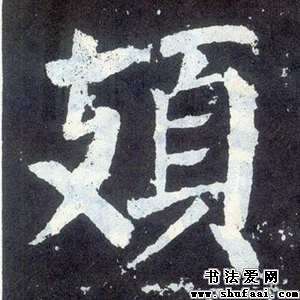 頍
书法爱网
www.shufaai.com